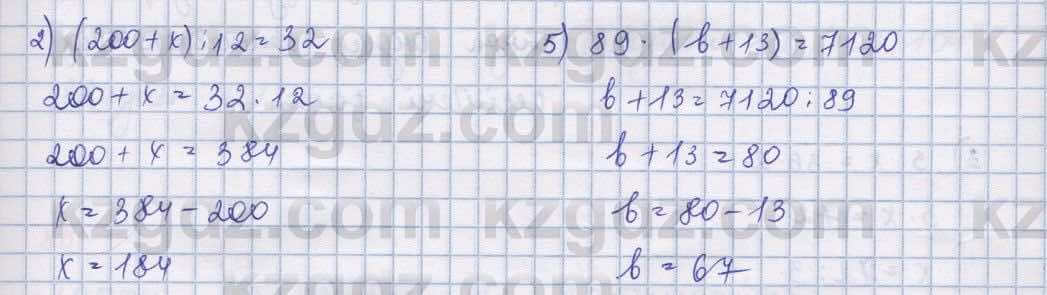 2) (200+x):12=32
200+x=32·12
200+x=384
x=384-200
x=184
5) 89·(b+13)=7120
b+13=7120:89
b+13=80
b=80-13
b=67
kzgdz.com
kzgdz.com
kzgdz.com
kzgdz.com
kzgdz.com